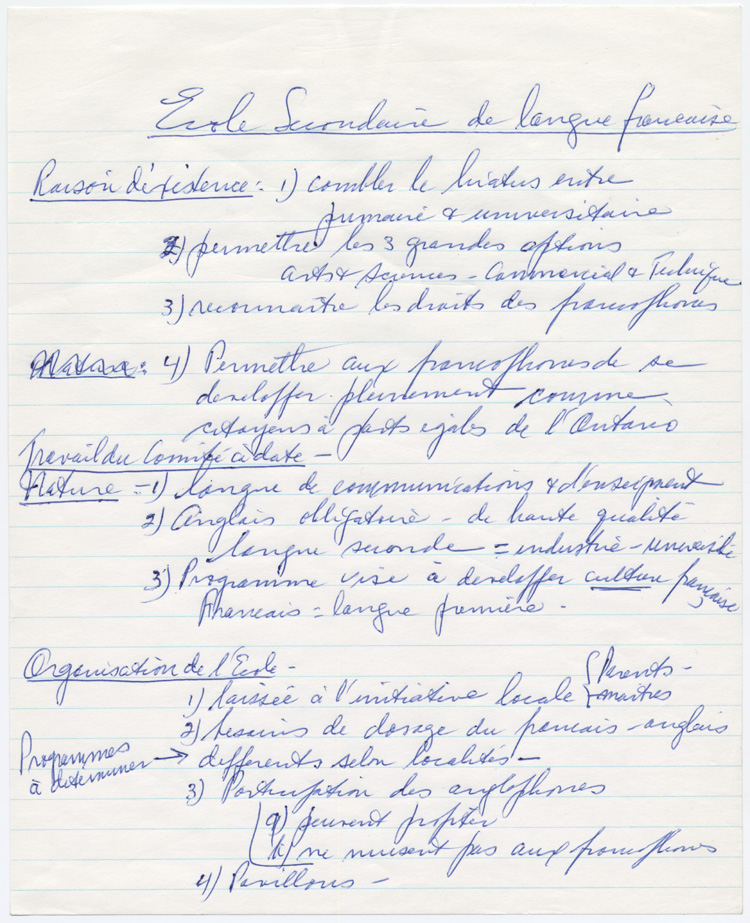 École Secondaire de langue francaise
Raison d'éxistence: 1) combler le hiatus entre
primaire & universitaire
2) permettre les 3 grandes options
Arts & sciences - Commercial & Technique
3) reconnaitre les droits des francophones
4) Permettre aux francophones de se
developper pleinement comme
citoyens à parts égales de l'Ontario
Travail du Comité à date -
Nature = 1) langue de communications & d'enseignment
2) Anglais obligatoire - de haute qualité
langue seconde = industrie - université
3) Programme vise à developper culture française
Francais = langue première -
Organisation de l'École -
1) laissée à l'initiative locale { Parents -
maitres
2) besoins de dosage du francais - anglais
Programmes
à determiner → differents selon localités -
3) Participation des anglophones
a) peuvent profiter
b) ne nuisent pas aux francophones
4) Pavillons -